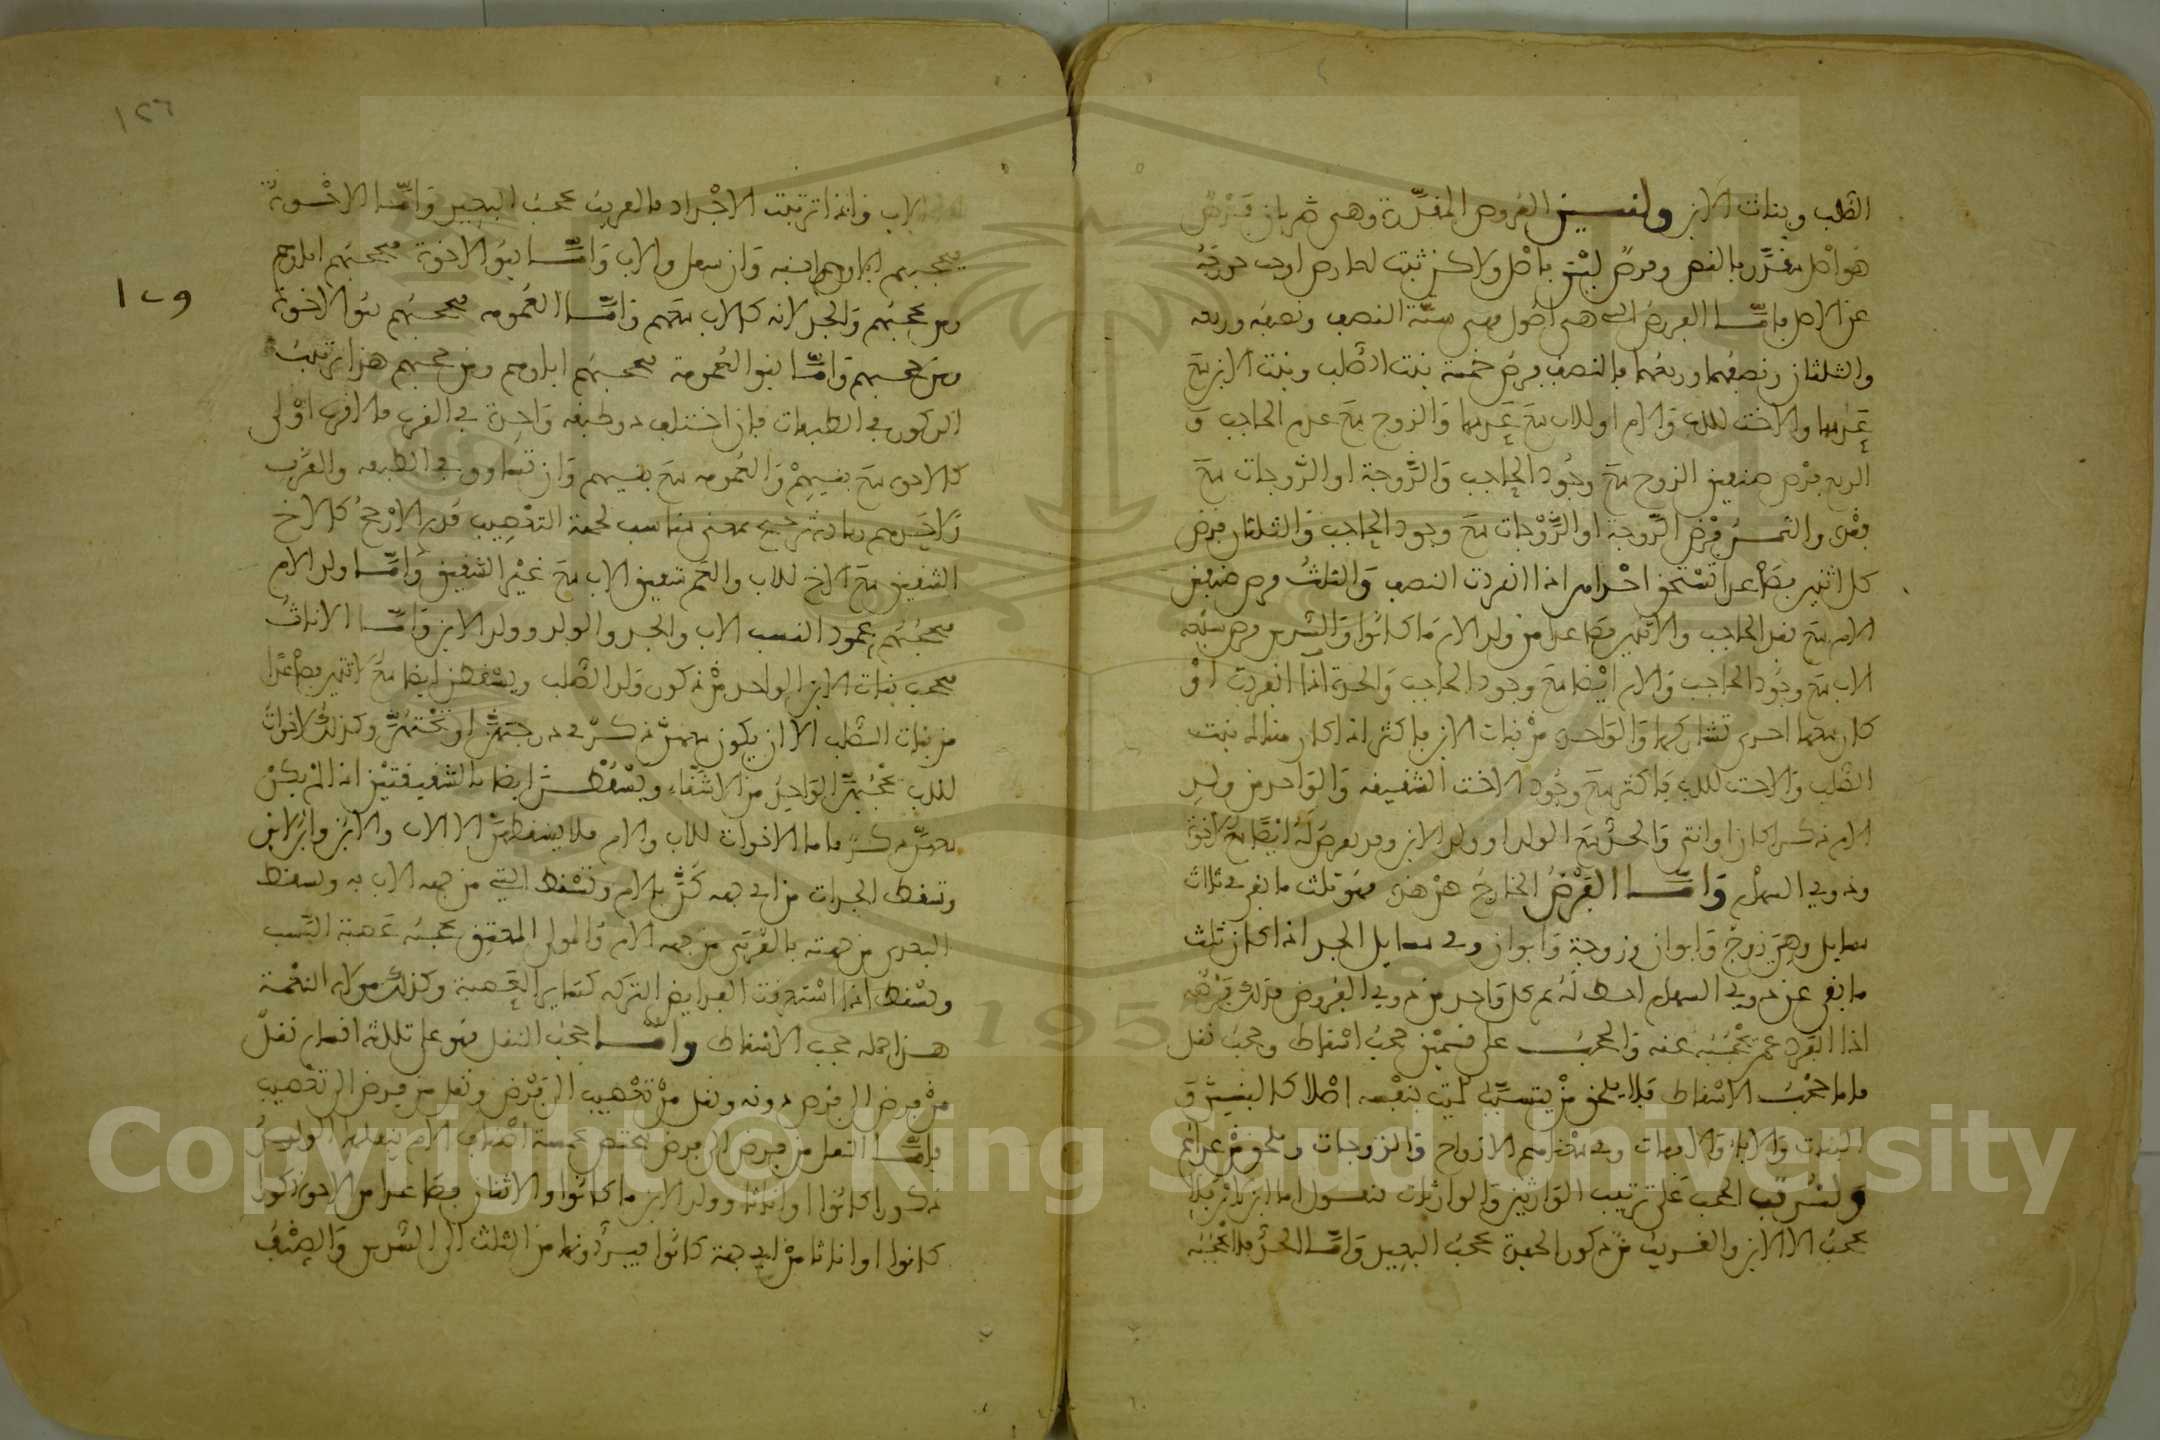 الصلب وبنات الابن ولنبين الفروض المقدرة وهي ضربان فرض
هو اصل مقدر بالنص وفرض ليس باصل ولاكن ثبت لعارض اوجب خروجه
عن الاصل فاما الفروض التي هي اصول فهي ستة النصف ونصفه وربعه
والثلثان ونصفهما وربعهما فالنصف فرض خمسة بنت الصلب وبنت الابن مع
عدمها والاخت للاب والام او للاب مع عدمها والزوج مع عدم الحاجب و
الربع فرض صنفين الزوج مع وجود الحاجب والزوجة او الزوجات مع
فقده والثمن فرض الزوجة او الزوجات مع وجود الحاجب والثلثان فرض
كل اثنتين فصاعدا تستحق احداهما اذا انفردت النصف والثلث فرض صنفين
الام مع فقد الحاجب والاثنين فصاعدا من ولد الام ما كانوا والسدس فرض سبعة
الاب مع وجود الحاجب والام ايضا مع وجود الحاجب والجدة اذا انفردت او
كان معها اخرى تشاركها والواحدة من بنات الابن فاكثر اذا كان هناك بنت
الصلب والاخت للاب فاكثر مع وجود الاخت الشقيقة والواحد من ولد
الام ذكرا كان او انثى والجد مع الولد او ولد الابن وقد يفرض له ايضا مع الاخوة
وذوي السهام واما الفرض الخارج عن هذه فهو ثلث ما بقي في ثلاث
مسايل وهي زوج وابوان وزوجة وابوان وفي مسايل الجد اذا كان ثلث
ما بقي عن ذوي السهام احظ له ثم كل واحد من ذوي الفروض فذلك فرضه
اذا انفرد عمن يحجبه عنه والحجب على قسمين حجب اسقاط وحجب نقل
فاما حجب الاسقاط فلا يلحق من يتسبب للميت بنفسه اصلا كالبنين و
البنات والاباء والامهات وفي معناهم الازواج والزوجات ويلحق من عداهم
ولنرتب الحجب على ترتيب الوارثين والوارثات فنقول اما ابن الابن فلا
يحجبه الا الابن والقريب من ذكور الحفدة يحجب البعيد واما الجد فلا يحجبه
الا الاب واذا ترتبت الاجداد فالقريب يحجب البعيد واما الاخوة
فيحجبهم الابن وابنه وان سفل والاب واما بنو الاخوة فيحجبهم اباؤهم
ومن يحجبهم والجد لانه كالاب معهم واما العمومة فيحجبهم بنو الاخوة
ومن يحجبهم واما بنو العمومة فيحجبهم اباؤهم ومن يحجبهم هذا ترتيب
الذكور في الطبقات فان اختلف ذو طبقة واحدة في القرب فالاقرب اولى
كالاخوة مع بنيهم والعمومة مع بنيهم وان تساووا في الطبقة والقرب
ولاحدهم زيادة ترجيح بمعنى مناسب لجهة التعصيب قدم الارجح كالاخ
الشقيق مع الاخ للاب والعم شقيق الاب مع غير الشقيق واما ولد الام
فيحجبهم عمود النسب الاب والجد والولد وولد الابن واما الاناث
فيحجب بنات الابن الواحد من ذكور ولد الصلب ويسقطن ايضا مع اثنتين فصاعدا
من بنات الصلب الا ان يكون معهن ذكر في درجتهن او تحتهن وكذلك الاخوات
للاب يحجبهن الواحد من الاشقاء ويسقطن ايضا بالشقيقتين اذا لم يكن
معهن ذكر فاما الاخوات للاب والام فلا يسقطهن الا الاب والابن وابن الابن
وتسقط الجدات من اي جهة كن بالام وتسقط التي من جهة الاب به وتسقط
البعدى من جهته بالقربى من جهة الام والمولى المعتق يحجبه عصبة النسب
ويسقط اذا استغرقت الفرايض التركة كساير العصبة وكذلك مولاة النعمة
هذا جملة حجب الاسقاط واما حجب النقل فهو على ثلاثة اقسام نقل
من فرض الى فرض دونه ونقل من تعصيب الى فرض ونقل من فرض الى تعصيب
فاما النقل من فرض الى فرض يختص بخمسة اصناف الام ينقلها الولد
ذكورا كانوا او اناثا وولد الابن ما كانوا والاثنان فصاعدا من الاخوة ذكورا
كانوا او اناثا من اي جهة كانوا فيردونها من الثلث الى السدس والصنف
١٢٦
١٢٥
King Saud University
1957
Copyright © King Saud University